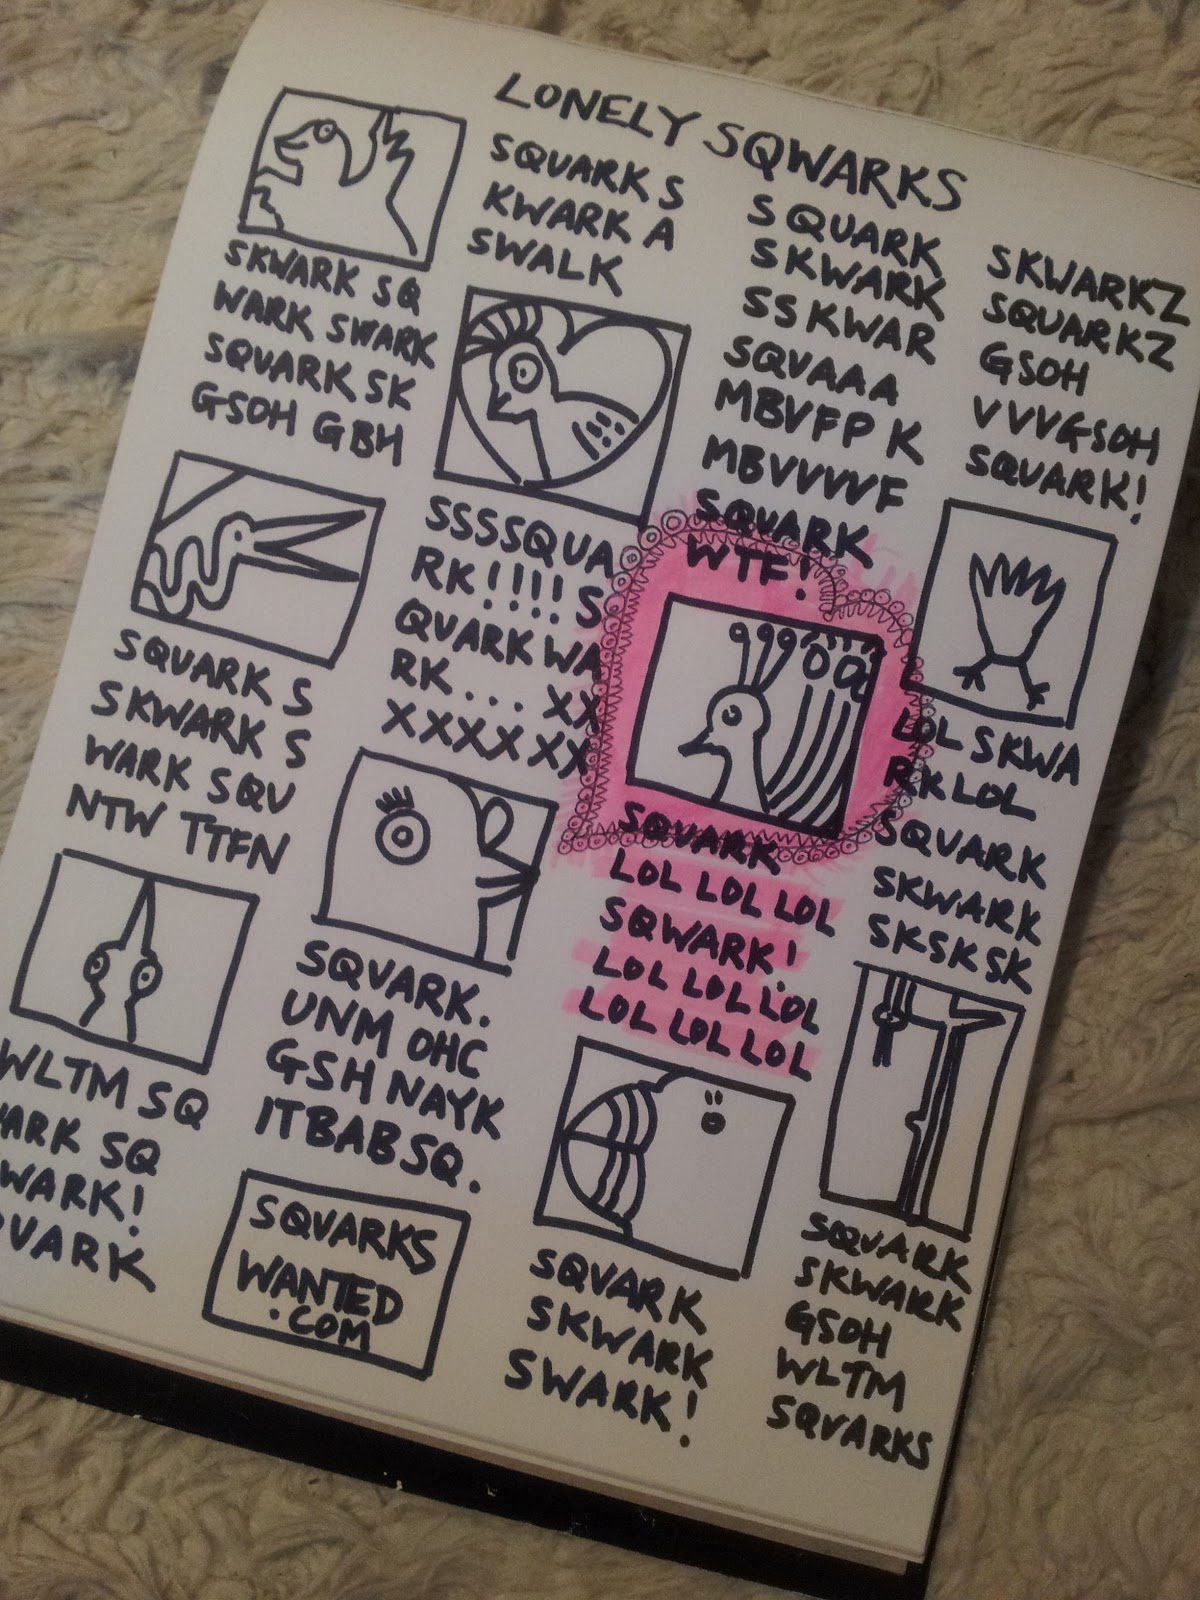 LONELY SQWARKS
SKWARK SQ
WARK SWARK
SQUARK SK
GSOH GBH
SQUARK S
SKWARK S
WARK SQU
NTW TTFN
WLTM SQ
WARK SQ
WARK!
QUARK
SQUARK S
KWARK A
SWALK
SSSSQUA
RK!!!! S
QUARK WA
RK... XX
XXXX XX
SQVARK.
UNM OHC
GSH NAYK
ITBAB SQ.
SQVARKS
WANTED
.COM
SQUARK
SKWARK
SSKWAR
SQVAAA
MBVFP K
MBVVVVF
SQVARK
WTF!
SQUARK
LOL LOL LOL
SQWARK!
LOL LOL LOL
LOL LOL LOL
SQVARK
SKWARK
SWARK!
SKWARKZ
SQUARKZ
GSOH
VVVGSOH
SQUARK!
LOL SKWA
RK LOL
SQVARK
SKWARK
SKSKSK
SQVARK
SKWARK
GSOH
WLTM
SQVARKS